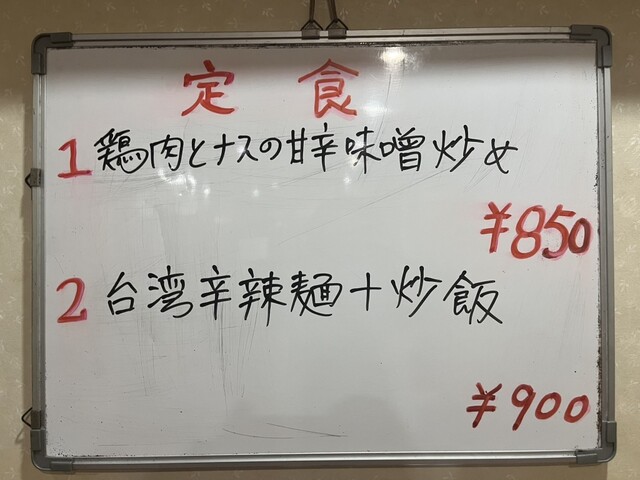 定食
1 鶏肉とナスの甘辛味噌炒め
¥850
2 台湾辛辣麺+炒飯
¥900